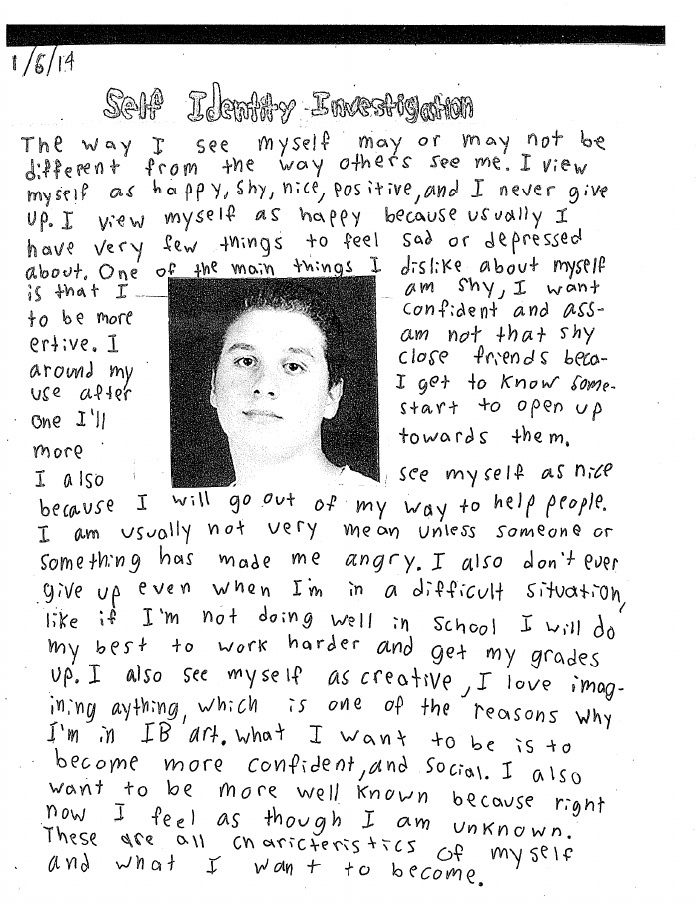 1/6/14
Self Identity Investigation
The way I see myself may or may not be
different from the way others see me. I view
myself as happy, shy, nice, positive, and I never give
up. I view myself as happy because usually I
have very few things to feel sad or depressed
about. One of the main things I dislike about myself
is that I am shy, I want
to be more confident and ass-
ertive. I am not that shy
around my close friends beca-
use after I get to know some-
one I'll start to open up
more towards them.
I also see myself as nice
because I will go out of my way to help people.
I am usually not very mean unless someone or
something has made me angry. I also don't ever
give up even when I'm in a difficult situation,
like if I'm not doing well in school I will do
my best to work harder and get my grades
up. I also see myself as creative, I love imag-
ining aything, which is one of the reasons why
I'm in IB art. what I want to be is to
become more confident, and social. I also
want to be more well known because right
now I feel as though I am unknown.
These are all charicteristics of myself
and what I want to become.